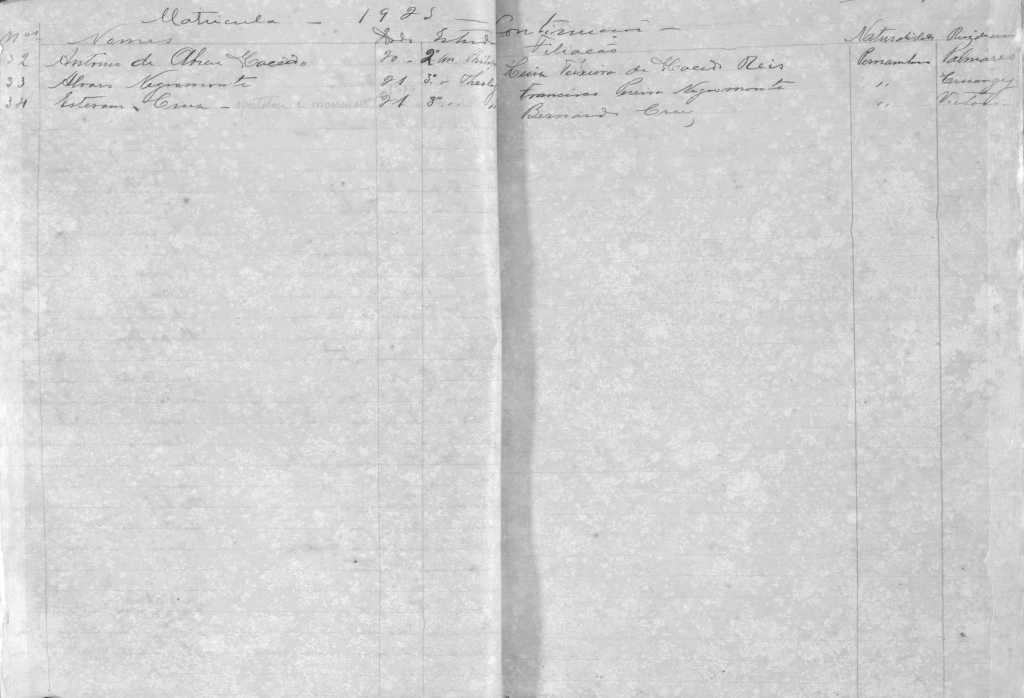 Matricula - 1925 - Continuação -
Nos Nomes Idade Estudo Filiação Naturalidade Residencia
32 Antonio de Abreu Macêdo 20 - 2º an. Philos Luiz Teixeira de Macedo Reis Pernambuco Palmares
33 Alvaro Negromonte 21 - 3º " Theolog Francisco Pereira Negromonte "
34 Estevam Cruz - apostatou e 21 3º " " Bernardo Cruz " Victoria